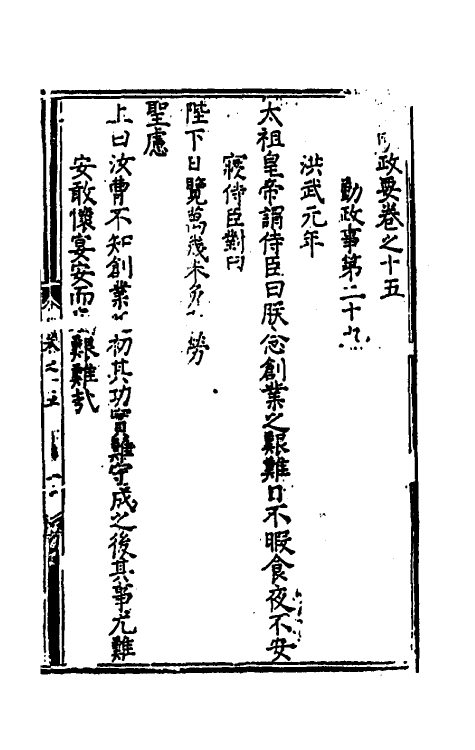 政要卷之十五
勤政事第二十
洪武元年
太祖皇帝謂侍臣曰朕念創業之艱難日不暇食夜不安
寢侍臣對曰
陛下日覽萬幾未免 勞
聖慮
上曰汝曹不知創業之初其功實難守成之後其事尤難
安敢懷宴安而忘艱難哉
卷之十五